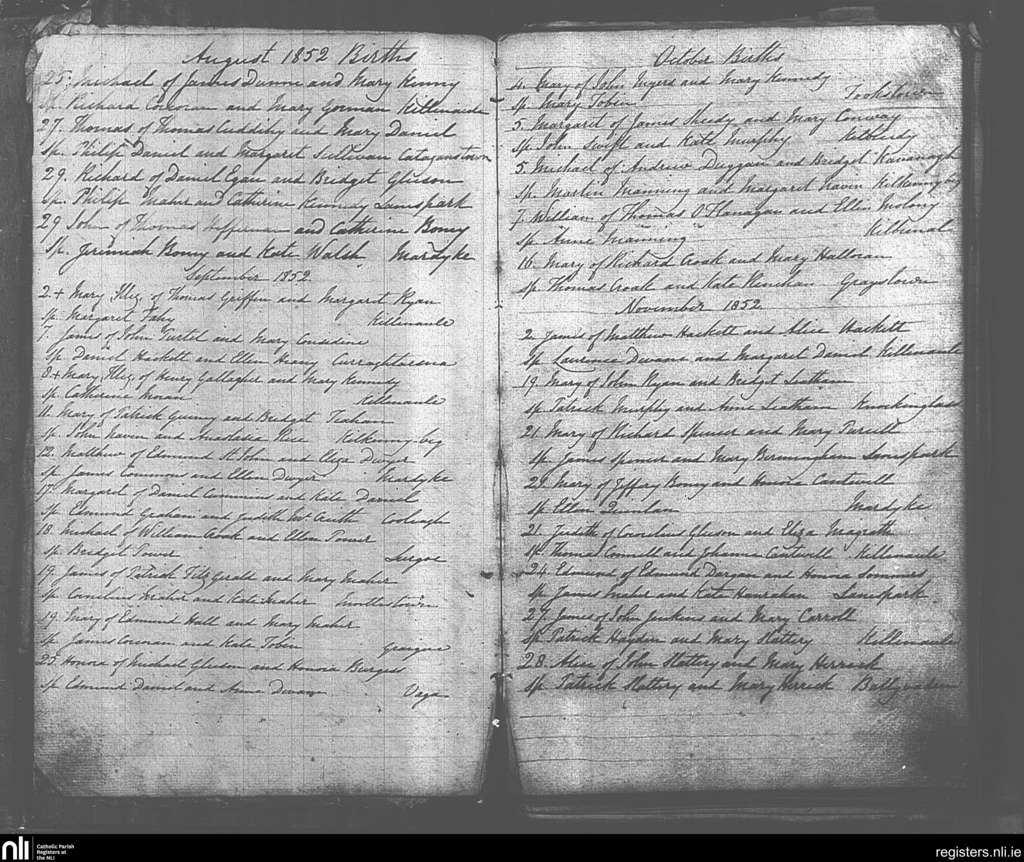 August 1852 Births
25. Michael of James Dunne and Mary Kenny
Sp. Richard Corcoran and Mary Gorman Killenaule
27. Thomas of Thomas Cuddihy and Mary Daniel
Sp. Philip Daniel and Margaret Sullivan
29. Richard of Daniel Egan and Bridget Gleeson
Sp. Philip Maher and Catherine Kennedy Lanespark
29 John of Thomas Heffernan and Catherine Boney
Sp. Jerimiah Bonny and Kate Walsh Mardyke
September 1852
2. + Mary Illeg. of Thomas Griffin and Margaret Ryan
Sp. Margaret Fahy Killenaule
7. James of John and Mary Considine
Sp. Daniel Hackett and Ellen Curraghtarsna
8 + Mary Illeg. of Henry Gallagher and Mary Kennedy
Sp. Catherine Moran Killenaule
11. Mary of Patrick Guiney and Bridget
Sp. John Naven and Anastasia Rice Kilkenny-beg
12. Matthew of Edmund St. John and Eliza Dwyer
Sp. James Commons and Ellen Dwyer Mardyke
17. Margaret of Daniel Cummins and Kate Daniel
Sp. Edmund Graham and Judith Cooleagh
18. Michael of William Croak and Ellen Power
Sp. Bridget Power
19. James of Patrick Fitz Gerald and Mary Maher
Sp. Cornelius Maher and Kate Maher
19. Mary of Edmund Hall and Mary Maher
Sp. James Corcoran and Kate Tobin Graigue
25. Honora of Michael Gleeson and Honora Burgess
Sp. Edmund Daniel and Anne Dwane
October Births
4. Mary of John Myers and Mary Kennedy
Sp. Mary Tobin
5. Margaret of James Sheedy and Mary Conway
Sp. John Swift and Kate Murphy
5. Michael of Andrew Duggan and Bridget Kavanagh
Sp. Martin Manning and Margaret Naven Kilkennybeg
7. William of Thomas O'Flanagan and Ellen Molony
Sp. Anne Manning
16. Mary of Richard Croak and Mary Halloran
Sp. Thomas Croak and Kate Graystown
November 1852
2. James of Matthew Hackett and Alice Hackett
Sp. Laurence Dwane and Margaret Daniel Killenaule
19. Mary of John Ryan and Bridget Leatham
Sp. Patrick Murphy and Anne Leatham Knockinglass
21. Mary of Richard Spencer and Mary Purcell
Sp. James Spencer and Mary Birmingham Lanespark
23. Mary of Jeffrey Boney and Honora Cantwell
Sp. Ellen Quinlan Mardyke
21. Judith of Cornelius Gleeson and Eliza Magrath
Sp. Thomas Connell and Johanna Cantwell Killenaule
24. Edmund of Edmund Dargan and Honora Sommers
Sp. James Maher and Kate Hanrahan Lanespark
27. James of John Jenkins and Mary Carroll
Sp. Patrick Hayden and Mary Slattery Killenaule
28. Alice of John Slattery and Mary Herrick
Sp. Patrick Slattery and Mary Herrick
nli Catholic Parish
Registers at
the NLI
registers.nli.ie